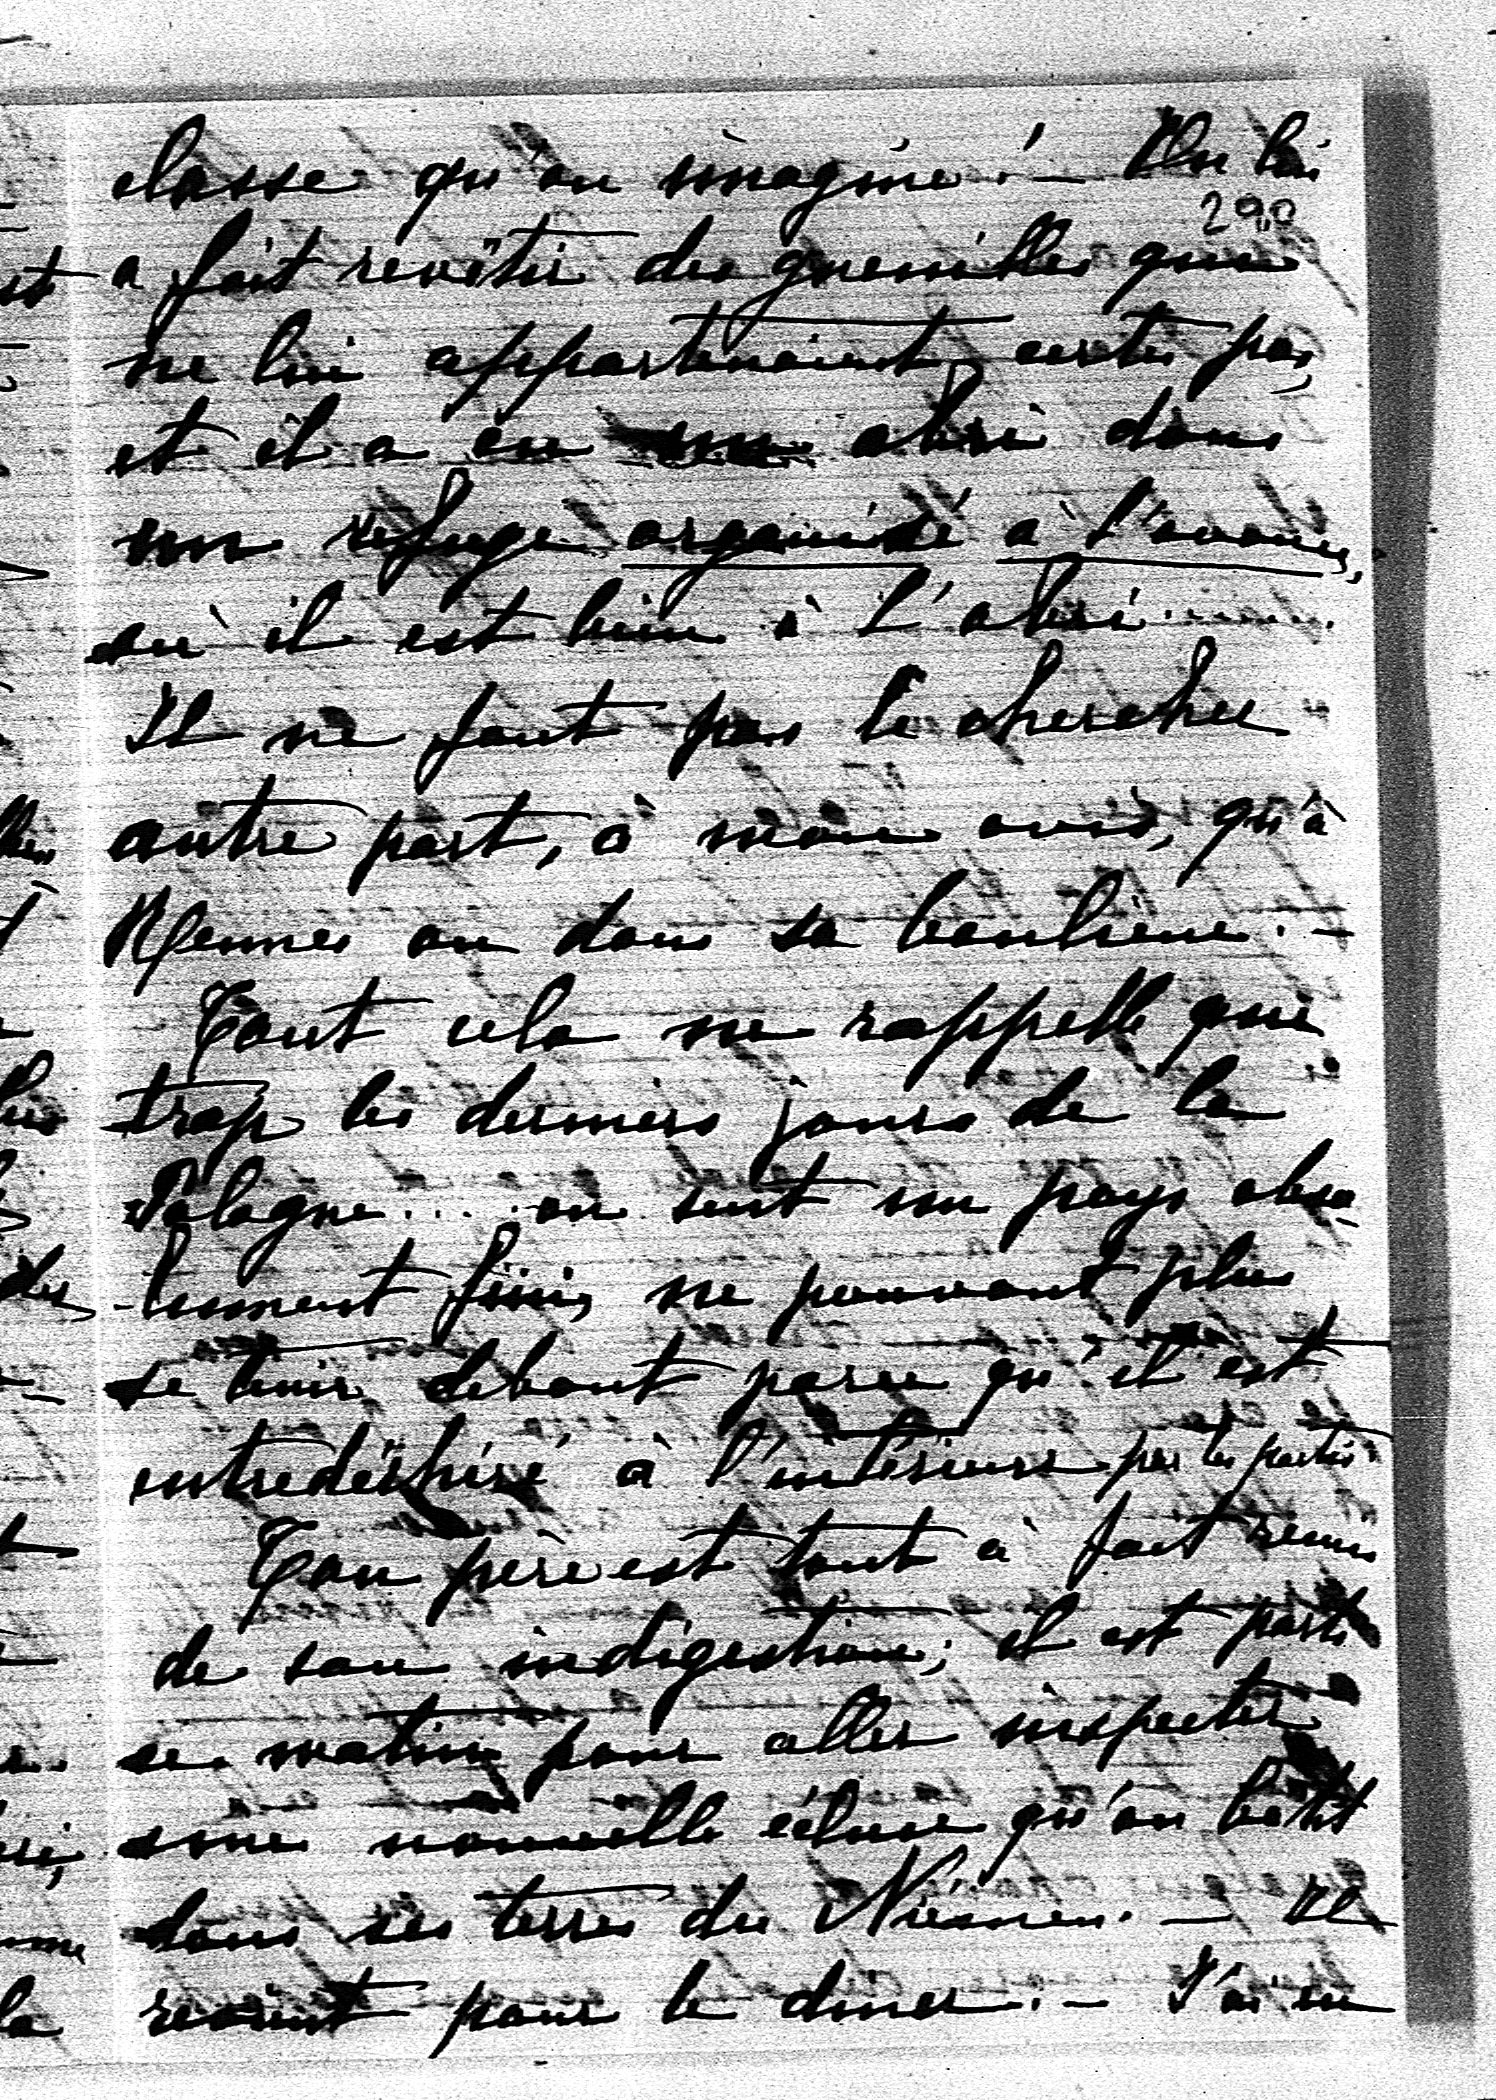 classe qu'on imagine. — On lui
290
a fait revêtir des guenilles qui
ne lui appartenaient certes pas
et il a eu un abri dans
un refuge organisé à l'avance,
où il est bien à l'abri.
Il ne faut pas le chercher
autre part, à mon avis, qu'à
Rennes ou dans sa banlieue. —
Tout cela me rappelle que
trop les derniers jours de la
Pologne.... on sent un pays abso-
-lument fini, ne pouvant plus
se tenir debout parce qu'il est
entredéchiré à l'intérieur par les partis.
Ton père est tout à fait remis
de son indigestion; il est parti
ce matin pour aller inspecter
une nouvelle écluse qu'on bâtit
dans ses terres du — Il
revient pour le diner. — J'ai eu